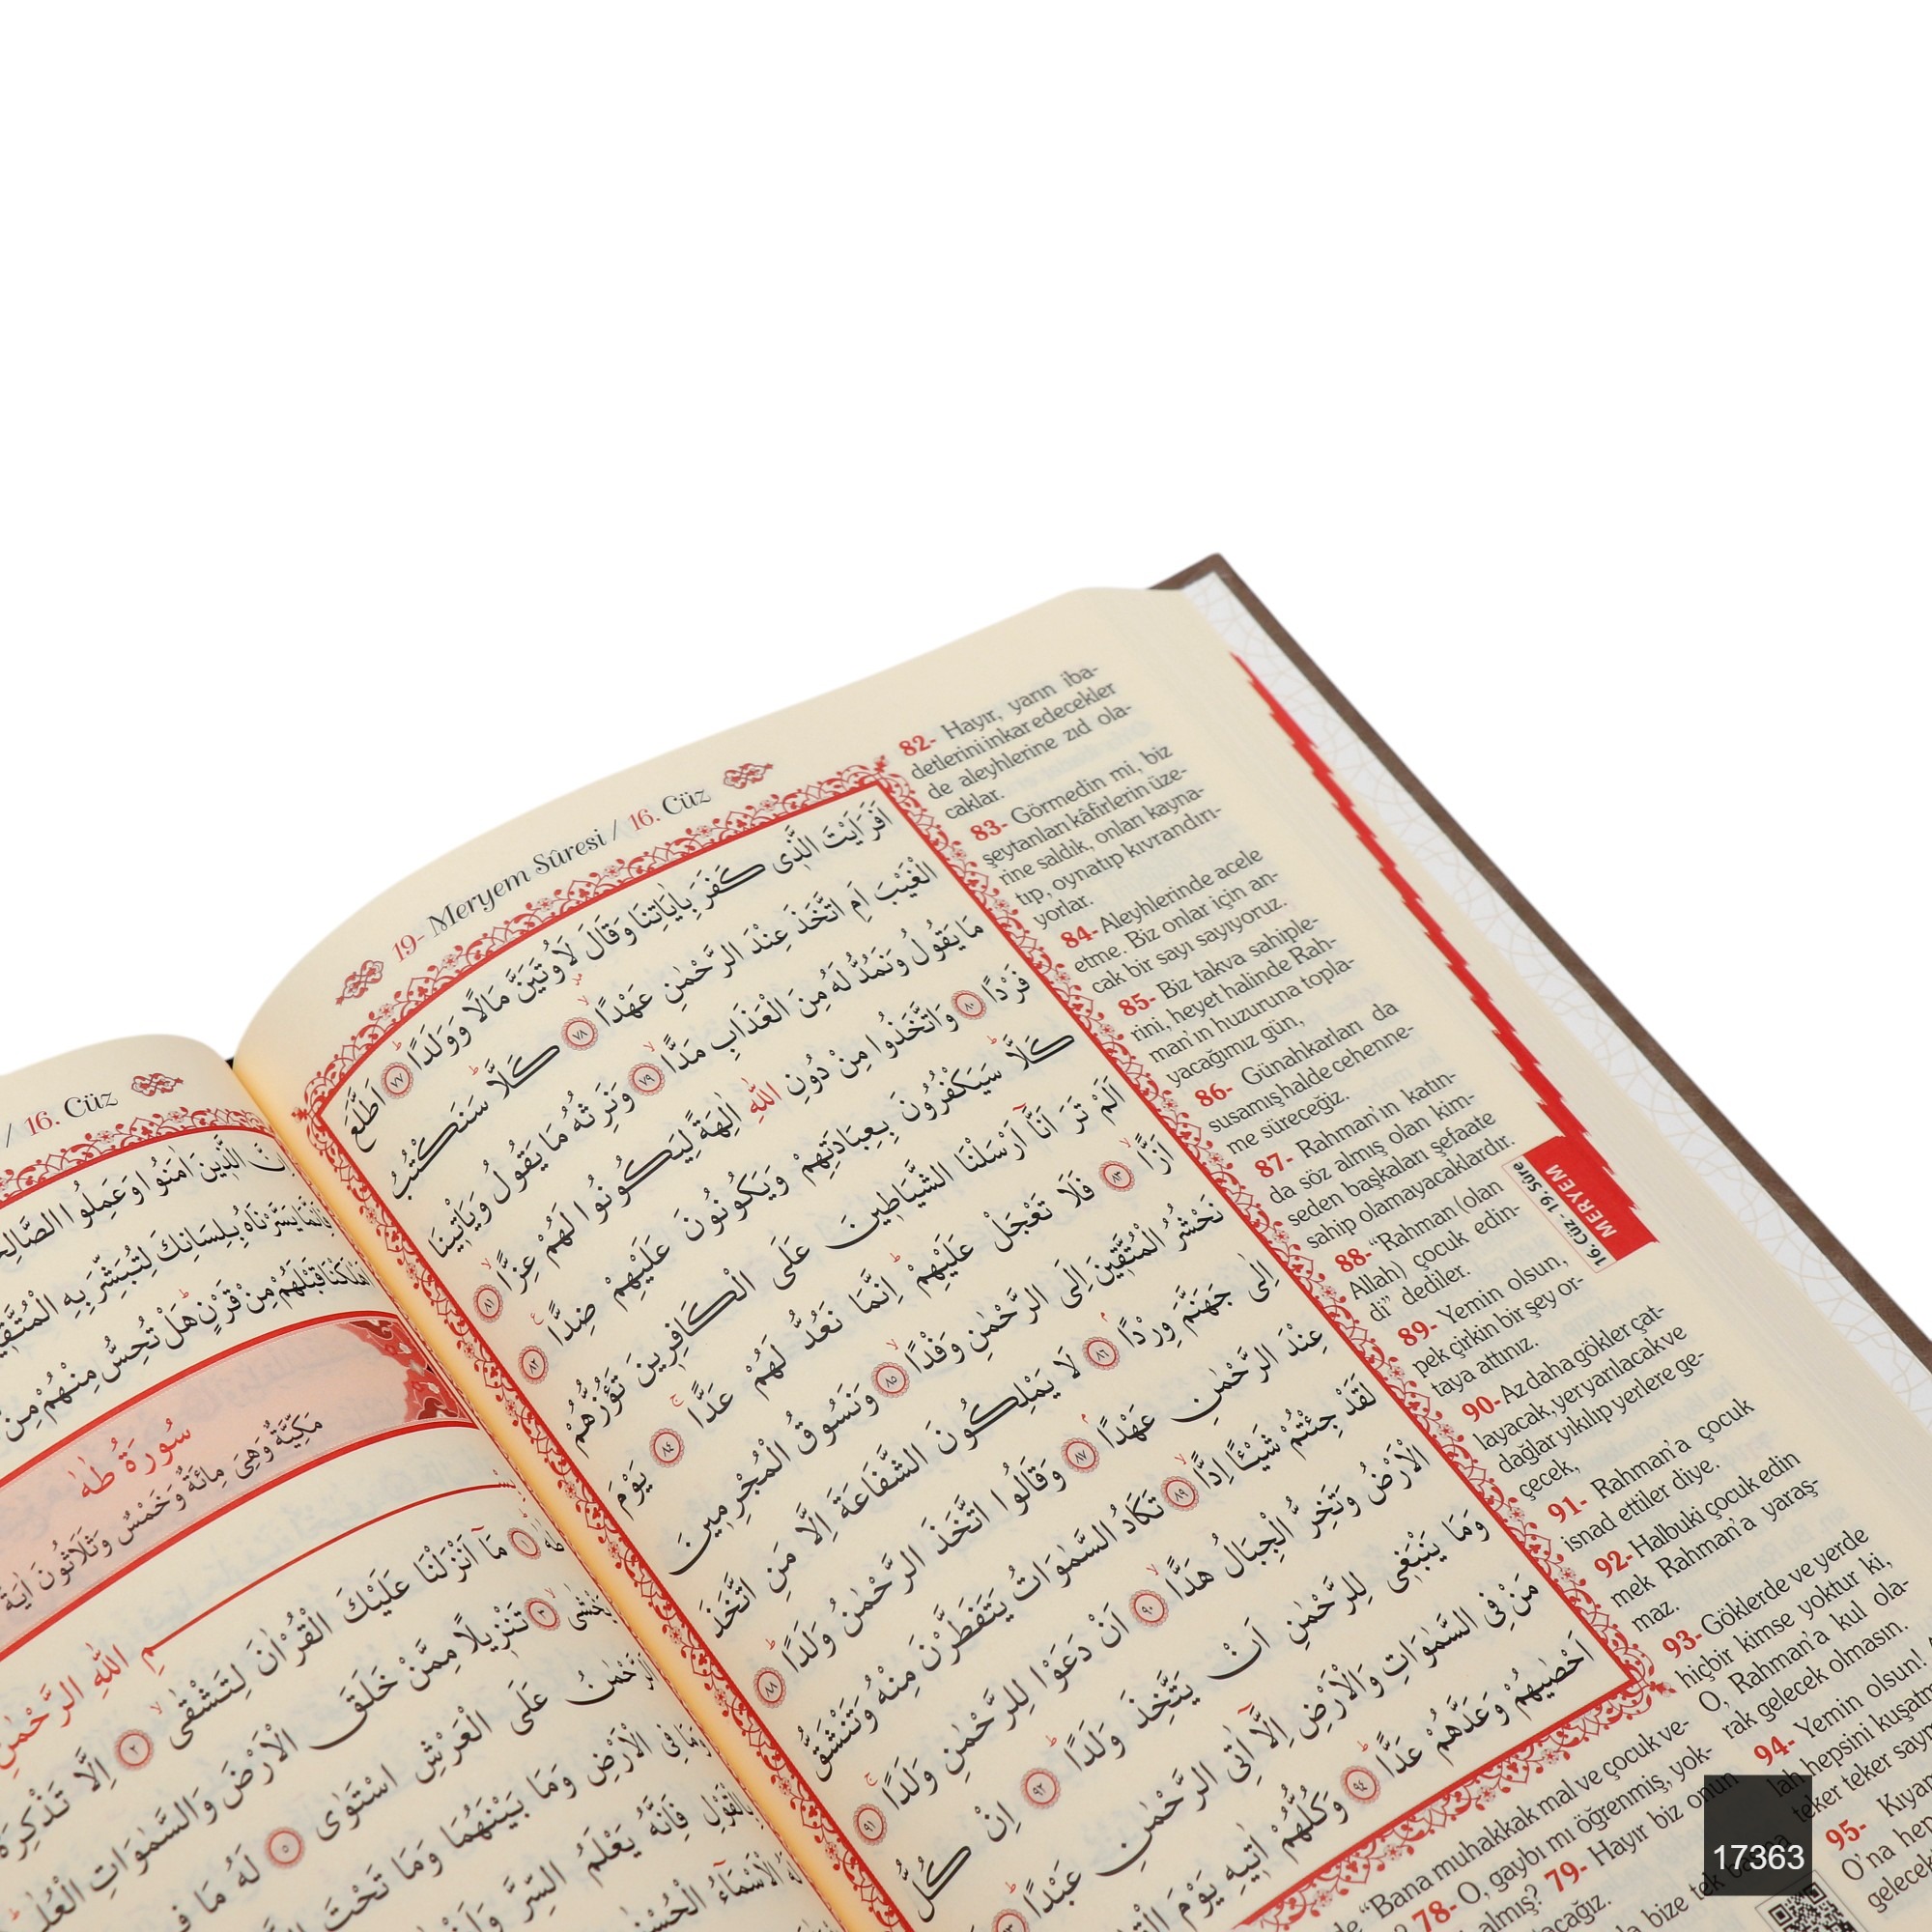 19- Meryem Sûresi / 16. Cüz
اَفَرَاَيْتَ الَّذٖى كَفَرَ بِاٰيَاتِنَا وَقَالَ لَاُوتَيَنَّ مَالًا وَوَلَدًا ﴿٧٧﴾ اَطَّلَعَ
الْغَيْبَ اَمِ اتَّخَذَ عِنْدَ الرَّحْمٰنِ عَهْدًا ﴿٧٨﴾ كَلَّا سَنَكْتُبُ
مَا يَقُولُ وَنَمُدُّ لَهُ مِنَ الْعَذَابِ مَدًّا ﴿٧٩﴾ وَنَرِثُهُ مَا يَقُولُ وَيَاْتٖينَا
فَرْدًا ﴿٨٠﴾ وَاتَّخَذُوا مِنْ دُونِ اللّٰهِ اٰلِهَةً لِيَكُونُوا لَهُمْ عِزًّا ﴿٨١﴾
كَلَّا سَيَكْفُرُونَ بِعِبَادَتِهِمْ وَيَكُونُونَ عَلَيْهِمْ ضِدًّا ﴿٨٢﴾
اَلَمْ تَرَ اَنَّا اَرْسَلْنَا الشَّيَاطٖينَ عَلَى الْكَافِرٖينَ تَؤُزُّهُمْ
اَزًّا ﴿٨٣﴾ فَلَا تَعْجَلْ عَلَيْهِمْ اِنَّمَا نَعُدُّ لَهُمْ عَدًّا ﴿٨٤﴾ يَوْمَ
نَحْشُرُ الْمُتَّقٖينَ اِلَى الرَّحْمٰنِ وَفْدًا ﴿٨٥﴾ وَنَسُوقُ الْمُجْرِمٖينَ
اِلٰى جَهَنَّمَ وِرْدًا ﴿٨٦﴾ لَا يَمْلِكُونَ الشَّفَاعَةَ اِلَّا مَنِ اتَّخَذَ
عِنْدَ الرَّحْمٰنِ عَهْدًا ﴿٨٧﴾ وَقَالُوا اتَّخَذَ الرَّحْمٰنُ وَلَدًا ﴿٨٨﴾
لَقَدْ جِئْتُمْ شَيْـًٔا اِدًّا ﴿٨٩﴾ تَكَادُ السَّمٰوَاتُ يَتَفَطَّرْنَ مِنْهُ وَتَنْشَقُّ
الْاَرْضُ وَتَخِرُّ الْجِبَالُ هَدًّا ﴿٩٠﴾ اَنْ دَعَوْا لِلرَّحْمٰنِ وَلَدًا ﴿٩١﴾
وَمَا يَنْبَغٖى لِلرَّحْمٰنِ اَنْ يَتَّخِذَ وَلَدًا ﴿٩٢﴾ اِنْ كُلُّ
مَنْ فِى السَّمٰوَاتِ وَالْاَرْضِ اِلَّا اٰتِى الرَّحْمٰنِ عَبْدًا ﴿٩٣﴾
اَحْصٰيهُمْ وَعَدَّهُمْ عَدًّا ﴿٩٤﴾ وَكُلُّهُمْ اٰتٖيهِ يَوْمَ
82- Hayır, yarın iba-
detlerini inkar edecekler
de aleyhlerine zıd ola-
caklar.
83- Görmedin mi, biz
şeytanları kâfirlerin üze-
rine saldık, onları kayna-
tıp, oynatıp kıvrandırı-
yorlar.
84- Aleyhlerinde acele
etme. Biz onlar için an-
cak bir sayı sayıyoruz.
85- Biz takva sahiple-
rini, heyet halinde Rah-
man'ın huzuruna topla-
yacağımız gün,
86- Günahkarları da
susamış halde cehenne-
me süreceğiz.
87- Rahman'ın katın-
da söz almış olan kim-
seden başkaları şefaate
sahip olamayacaklardır.
88- "Rahman (olan
Allah) çocuk edin-
di" dediler.
89- Yemin olsun,
pek çirkin bir şey or-
taya attınız.
90- Az daha gökler çat-
layacak, yer yarılacak ve
dağlar yıkılıp yerlere ge-
çecek,
91- Rahman'a çocuk
isnad ettiler diye.
92- Halbuki çocuk edin
mek Rahman'a yaraş-
maz.
93- Göklerde ve yerde
hiçbir kimse yoktur ki,
O, Rahman'a kul ola-
rak gelecek olmasın.
94- Yemin olsun!
lah hepsini kuşatm
teker teker sayı
95- Kıyam
O'na hep
gelecek
de "Bana muhakkak mal ve çocuk ve-
78- O, gaybı mı öğrenmiş, yok-
almış? 79- Hayır biz onun
bize tek
16. Cüz - 19. Sûre
MERYEM
/ 16. Cüz
اِنَّ الَّذٖينَ اٰمَنُوا وَعَمِلُوا
فَاِنَّمَا يَسَّرْنَاهُ بِلِسَانِكَ لِتُبَشِّرَ بِهِ
اَهْلَكْنَا قَبْلَهُمْ مِنْ قَرْنٍ هَلْ تُحِسُّ مِنْهُمْ مِنْ
سُورَةُ طٰهٰ
مَكِّيَّةٌ وَهِىَ مِائَةٌ وَخَمْسٌ وَثَلَاثُونَ اٰيَةً
اللّٰهِ الرَّحْمٰنِ
طٰهٰ ﴿١﴾ مَا اَنْزَلْنَا عَلَيْكَ الْقُرْاٰنَ لِتَشْقٰى ﴿٢﴾ اِلَّا تَذْكِرَةً
يَخْشٰى ﴿٣﴾ تَنْزٖيلًا مِمَّنْ خَلَقَ الْاَرْضَ وَالسَّمٰوَاتِ الْعُلٰى
اَلرَّحْمٰنُ عَلَى الْعَرْشِ اسْتَوٰى ﴿٥﴾ لَهُ مَا فِى
وَمَا فِى الْاَرْضِ وَمَا بَيْنَهُمَا وَمَا تَحْتَ
بِالْقَوْلِ فَاِنَّهُ يَعْلَمُ السِّرَّ
لَهُ الْاَسْمَاءُ الْحُسْنٰى
17363